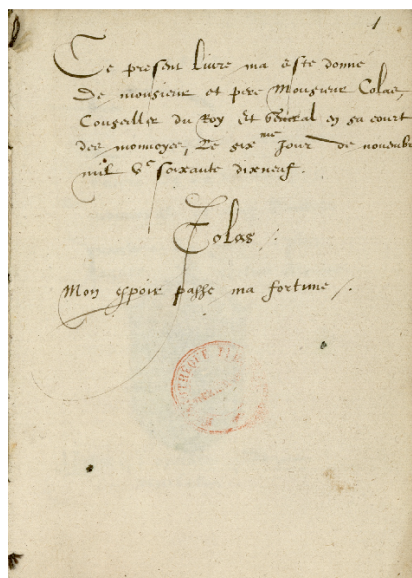 1
Ce present livre ma este donne
De monsieur et pere Monsieur Colas,
Conseiller du Roy Et general en sa court
des monnoyes, Le six me Jour de novembre
mil Vc soixante dixneuf.
Colas
Mon espoir passe ma fortune